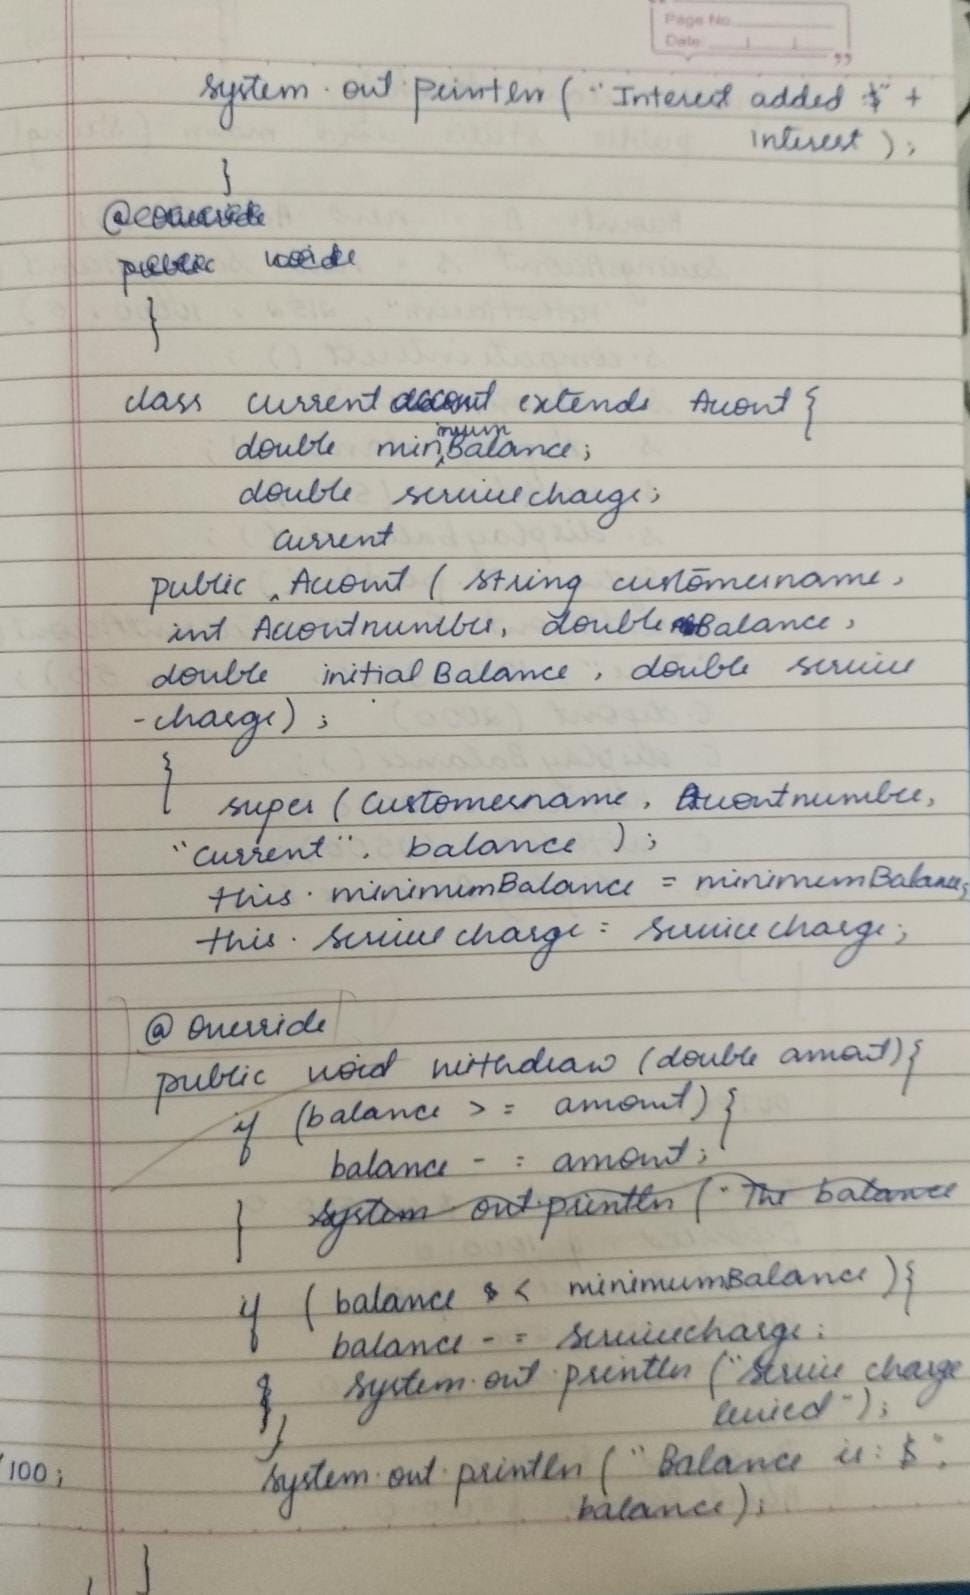 Page No.
Date
System.out.println("Interest added $" +
interest);
}
@override
public void
}
class current account extends Account {
double minimumBalance;
double servicecharge;
current
public Account (string customername,
int Accountnumber, double Balance,
double initialBalance, double service
-charge);
{
super (Customername, Accountnumber,
"Current", balance);
this.minimumBalance = minimumBalance;
this.servicecharge = servicecharge;
@override
public void withdraw (double amount){
if (balance >= amount){
balance -= amount;
} System.out.println("The balance
if (balance < minimumBalance){
balance -= servicecharge;
System.out.println("Service charge
levied");
}
/100;
System.out.println("Balance is: $",
balance);
}